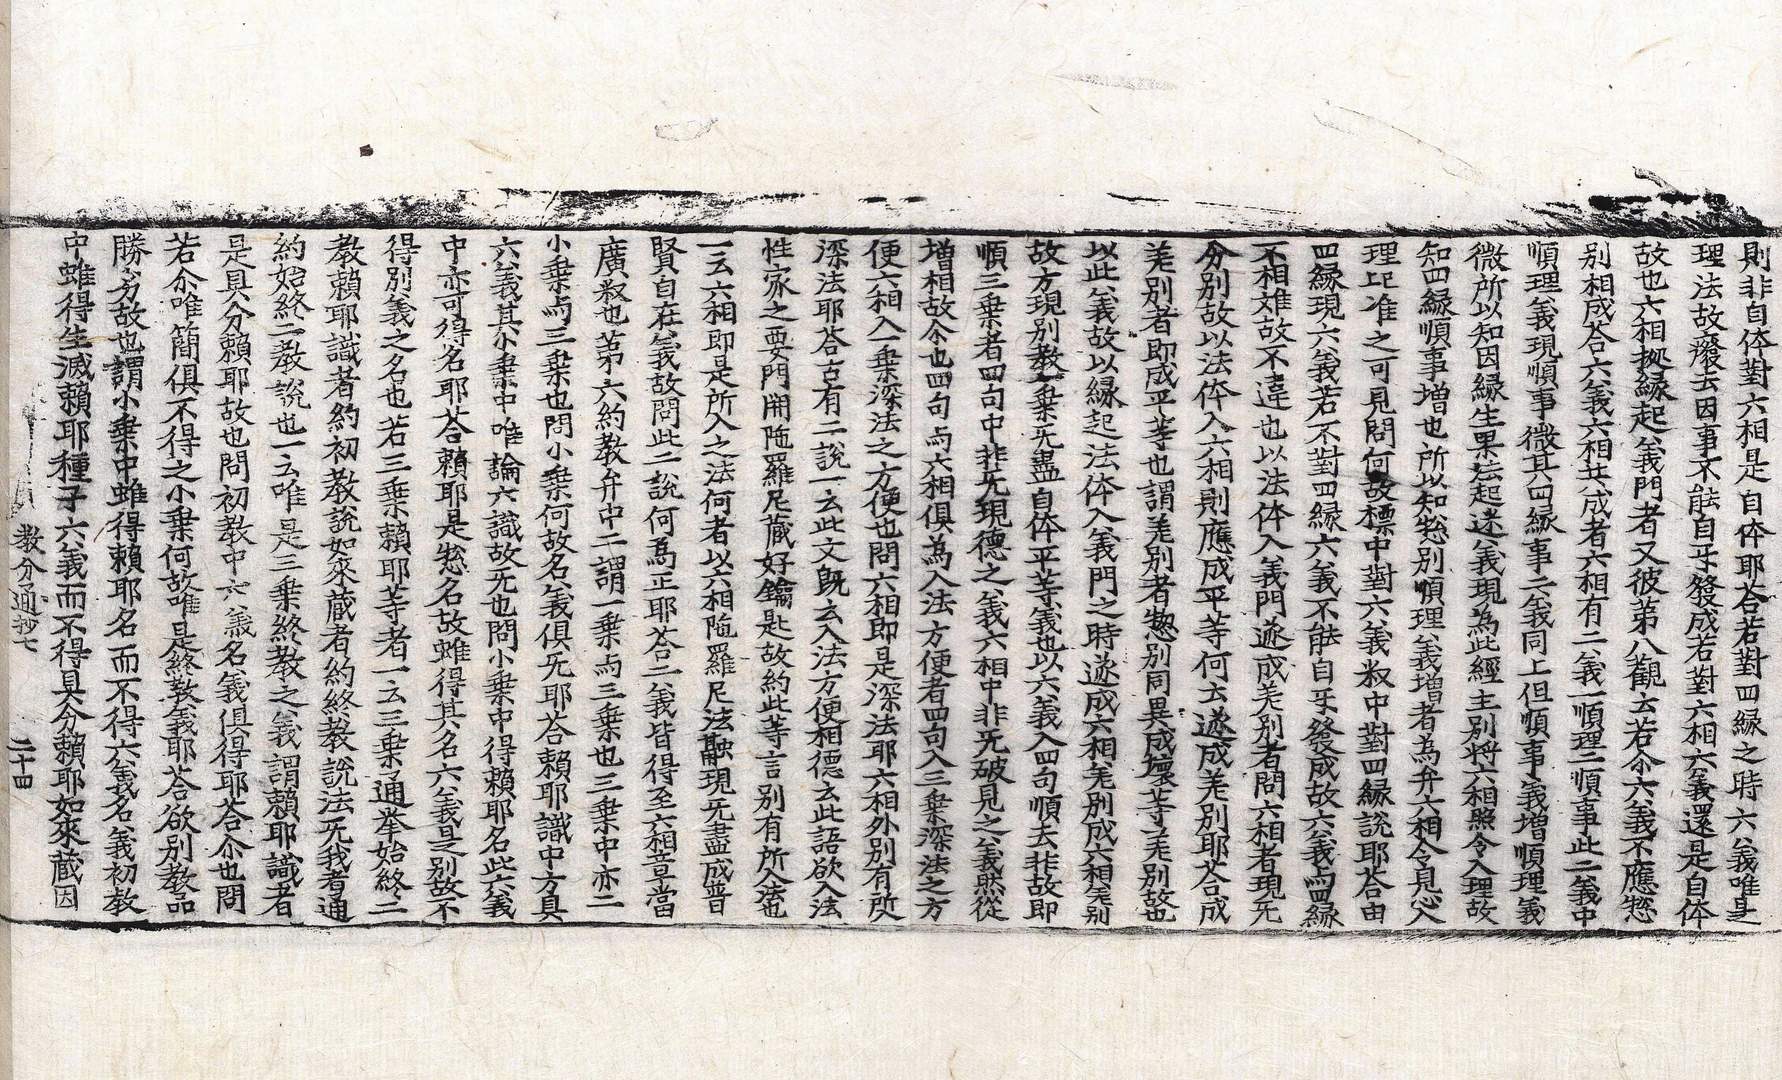 則非自体對六相是自体耶荅若對四縁之時六義唯是
理法故癈云因事不能自乎發成若對六相六義還是自体
故也六相拠縁起義門者又彼苐八觀云若尒六義不應惣
別相成荅六義六相共成者六相有二義一順理二順事此二義中
順理義現順事微其四縁事二義同上但順事義增順理義
微所以知因縁生果法起迷義現為此經主別將六相照令入理故
知四縁順事增也所以知惣別順理義增者為弁六相令見心入
理此准之可見問何故標中對六義叙中對四縁說耶荅由
四縁現六義若不對四縁六義不能自乎發成故六義与四縁
不相雜故不違也以法体入義門遂成差別者問六相者現旡
分別故以法体入六相則應成平等何云遂成差別耶荅成
差別者即成平等也謂差別者惣別同異成壞等差別故也
以此義故以縁起法体入義門之時遂成六相差別成六相差別
故方現別教一乗旡盡自体平等義也以六義入四句順去非故即
順三乗者四句中非旡現德之義六相中非旡破見之義然從
增相故尒也四句与六相俱為入法方便者四句入三乗深法之方
便六相入一乗深法之方便也問六相即是深法耶六相外別有所
深法耶荅古有二說一云此文旣云入法方便相德云此語欲入法
性家之要門開陁羅尼藏好鑰匙故約此等言別有所入法也
一云六相即是所入之法何者以六相陁羅尼法融現旡盡成普
賢自在義故問此二說何為正耶荅二義皆得至六相章當
廣叙也苐六約教弁中二謂一乗与三乗也三乗中亦二
小乗与三乗也問小乗何故名義俱旡耶荅賴耶識中方具
六義其小乗中唯論六識故旡也問小乗中得賴耶名此六義
中亦可得名耶荅賴耶是惣名故雖得其名六義是別故不
得別義之名也若三乗賴耶等者一云三乗通挙始終二
教賴耶識者約初教說如來藏者約終教說法旡我者通
約始終二教說也一云唯是三乗終教之義謂賴耶識者
是具分賴耶故也問初教中六義名義俱得耶荅尒也問
若尒唯簡俱不得之小乗何故唯是終教義耶荅欲別教品
勝劣故也謂小乗中雖得賴耶名而不得六義名義初教
中雖得生滅賴耶種子六義而不得具分賴耶如來藏因
教分通抄七　二十四